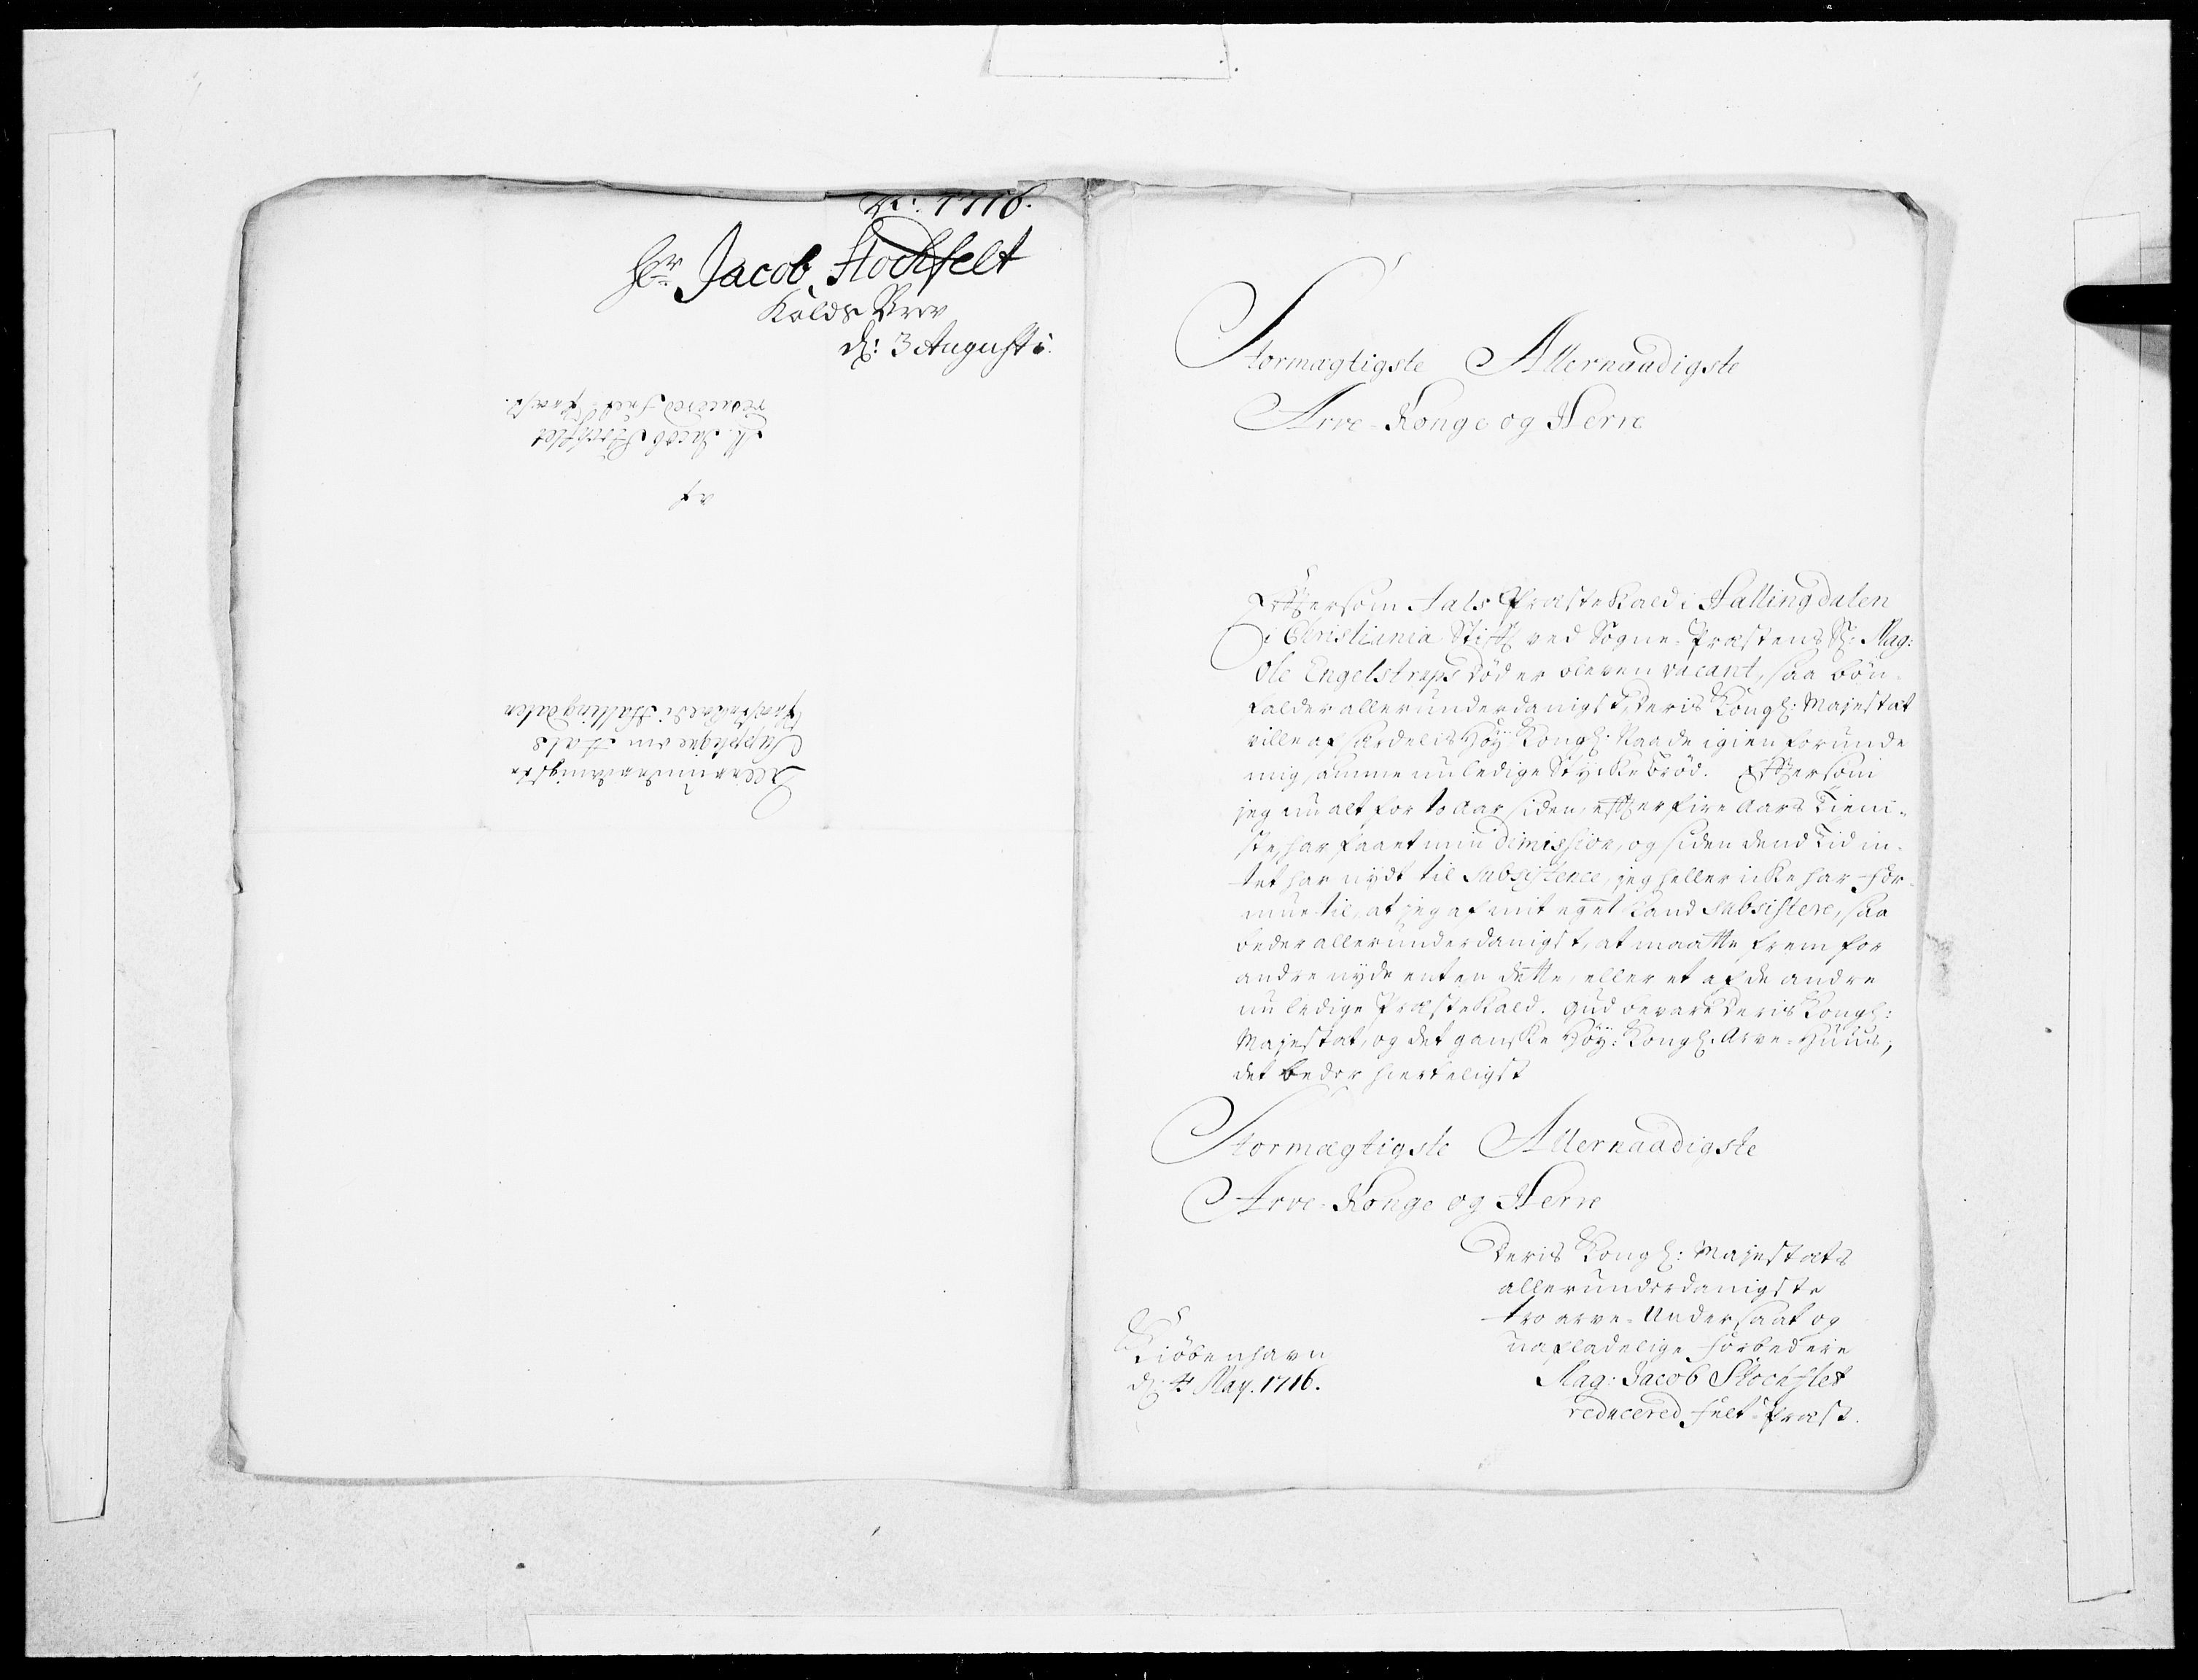 Ao: 1716.
Hr Jacob Stockfelt
Kalds Brev
d: 3 Augusti
Allerunderdanigste
Supplique om Aals
Præstekald i Hallingdalen
af
M. Jacob Stochflet
reducered Felt-Præst.
Stormægtigste Allernaadigste
Arve-Konge og Herre
Eftersom Aals Præstekald i Hallingdalen
i Christiania Stift ved Sogne-Præstens Sl: Mag:
Ole Engelstrups død er bleven vacant, saa bøn-
falder allerunderdanigst, Deris Kongl: Majestat
ville af særdelis Høy Kongl: Naade igien forunde
mig samme nu ledige Stycke brød. Eftersom
jeg nu alt for to Aar siden, efter fire Aars Tieni-
ste, har faaet min dimission, og siden dend Tid in-
tet har nydt til subsistence, jeg heller icke har for-
mue til, at jeg af mit eget kand subsistere, saa
beder allerunderdanigst, at maatte frem for
andre nyde enten dette, eller et af de andre
nu ledige Præstekald. Gud bevare Deris Kongl:
Majestat, og det gandske Høy-Kongl: Arve-Huus,
det beder hierteligst
Stormægtigste Allernaadigste
Arve-Konge og Herre
Deris Kongl: Majestæts
allerunderdanigste
tro arve-Undersaat og
uafladelige forbedere
Mag: Jacob Stochflet
reducered Felt-Præst.
Kiøbenhavn
d: 4 May. 1716.